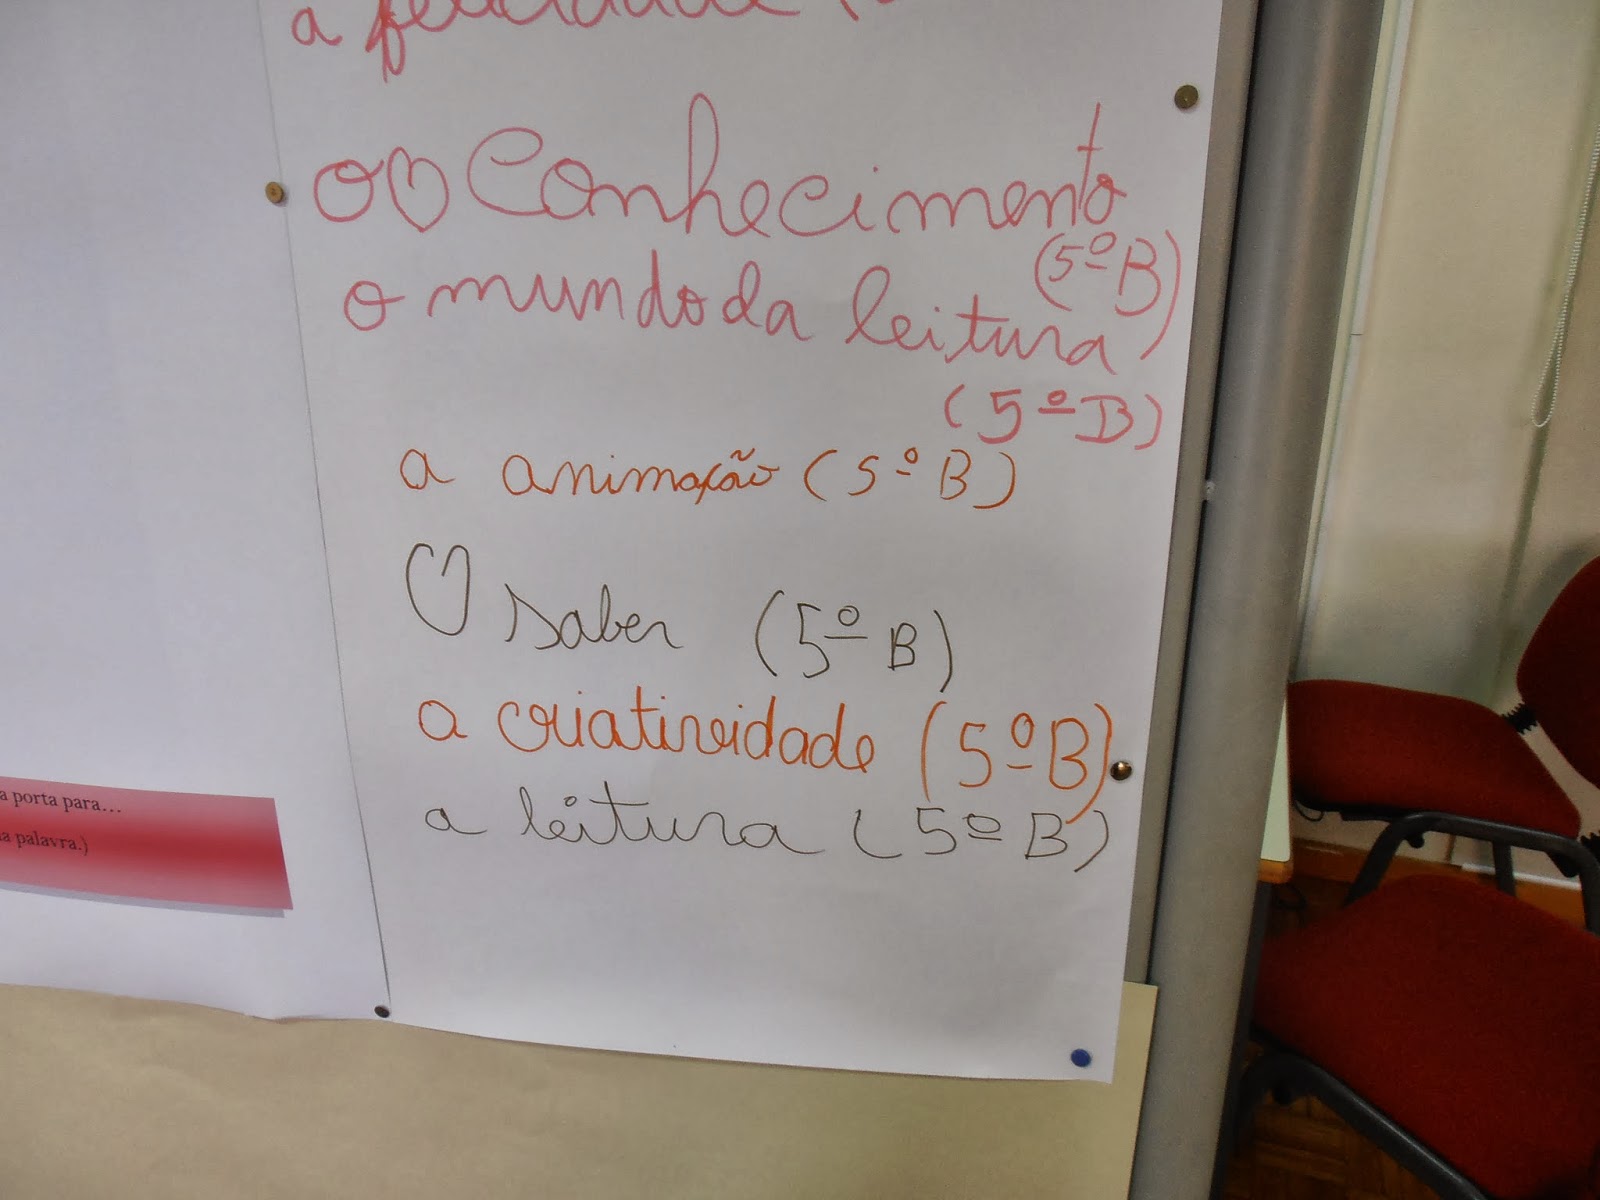 a felicidade (
o Conhecimento
(5º B)
o mundo da leitura
(5º B)
a animação (5º B)
O saber (5º B)
a criatividade (5º B)
a leitura (5º B)
a porta para...
a palavra.)